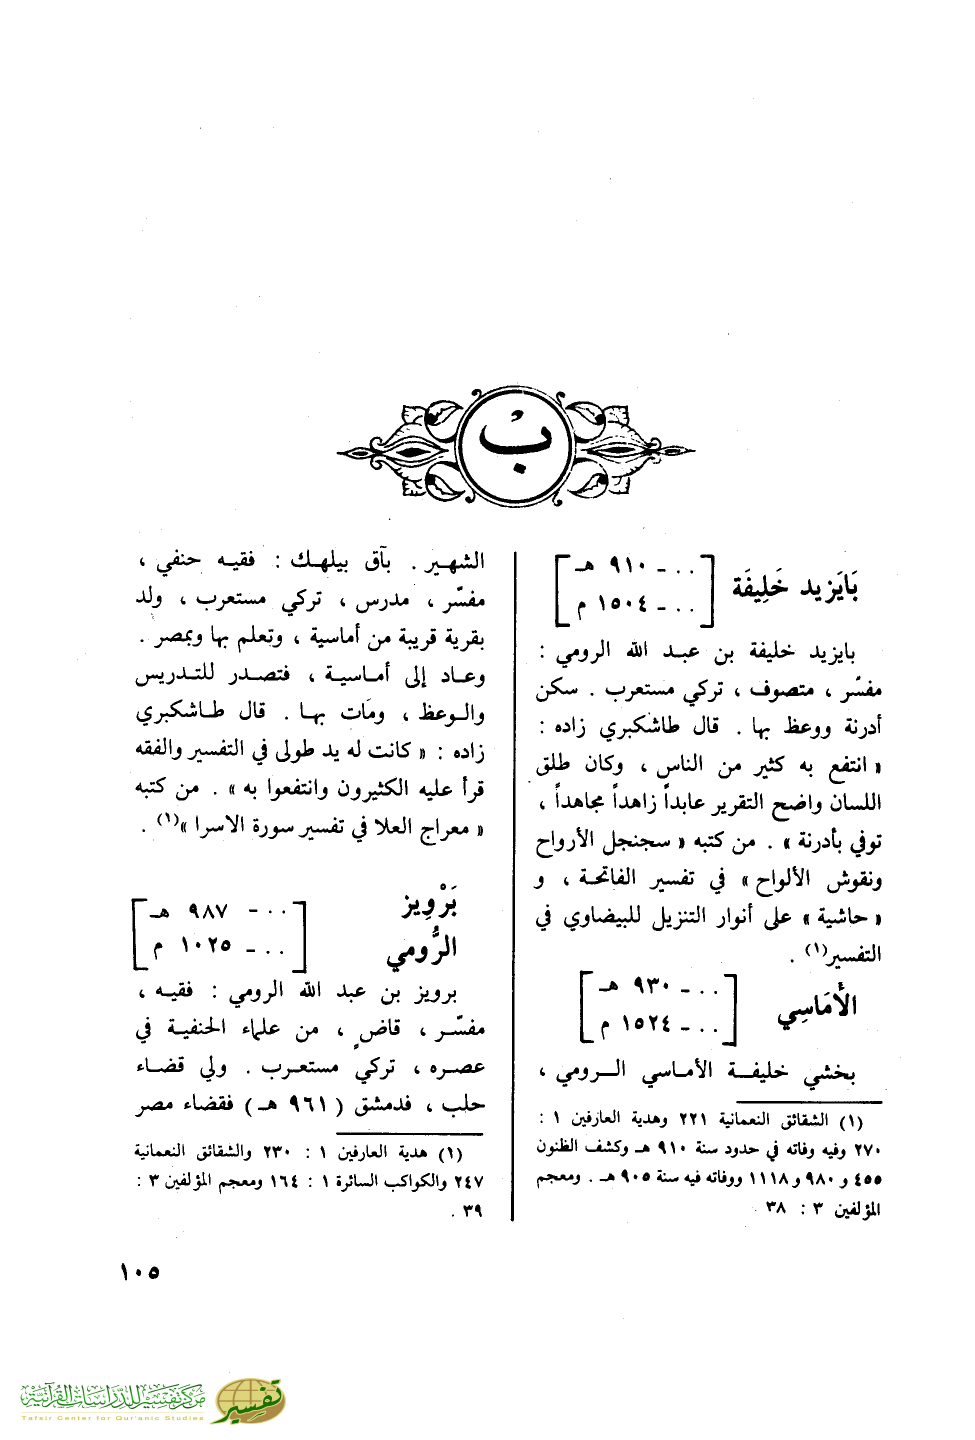 ب
بَايَزِيد خَلِيفَة
[ . . . ـ ٩١٠ هـ
. . . ـ ١٥٠٤ م ]
بايزيد خليفة بن عبد الله الرومي :
مفسّر ، متصوف ، تركي مستعرب . سكن
أدرنة ووعظ بها . قال طاشكبري زاده :
« انتفع به كثير من الناس ، وكان طلق
اللسان واضح التقرير عابداً زاهداً مجاهداً ،
توفي بأدرنة » . من كتبه « سجنجل الأرواح
ونقوش الألواح » في تفسير الفاتحة ، و
« حاشية » على أنوار التنزيل للبيضاوي في
التفسير(١) .
الأَمَاسِي
[ . . . ـ ٩٣٠ هـ
. . . ـ ١٥٢٤ م ]
بخشي خليفة الأماسي الرومي ،
(١) الشقائق النعمانية ٢٢١ وهدية العارفين ١ :
٢٧٠ وفيه وفاته في حدود سنة ٩١٠ هـ وكشف الظنون
٤٥٥ و ٩٨٠ و ١١١٨ ووفاته فيه سنة ٩٠٥ هـ . ومعجم
المؤلفين ٣ : ٣٨
الشهير . بآق بيلهك : فقيه حنفي ،
مفسّر ، مدرس ، تركي مستعرب ، ولد
بقرية قريبة من أماسية ، وتعلم بها وبمصر .
وعاد إلى أماسية ، فتصدر للتدريس
والوعظ ، ومات بها . قال طاشكبري
زاده : « كانت له يد طولى في التفسير والفقه
قرأ عليه الكثيرون وانتفعوا به » . من كتبه
« معراج العلا في تفسير سورة الاسرا »(١) .
بَرْوِيز
الرُّومي
[ . . . ـ ٩٨٧ هـ
. . . ـ ١٠٢٥ م ]
برويز بن عبد الله الرومي : فقيه ،
مفسّر ، قاضٍ ، من علماء الحنفية في
عصره ، تركي مستعرب . ولي قضاء
حلب ، فدمشق ( ٩٦١ هـ ) فقضاء مصر
(١) هدية العارفين ١ : ٢٣٠ والشقائق النعمانية
٢٤٧ والكواكب السائرة ١ : ١٦٤ ومعجم المؤلفين ٣ :
٣٩ .
١٠٥
مركز تفسير للدراسات القرآنية
Tafsir Center for Qur'anic Studies
تفسير